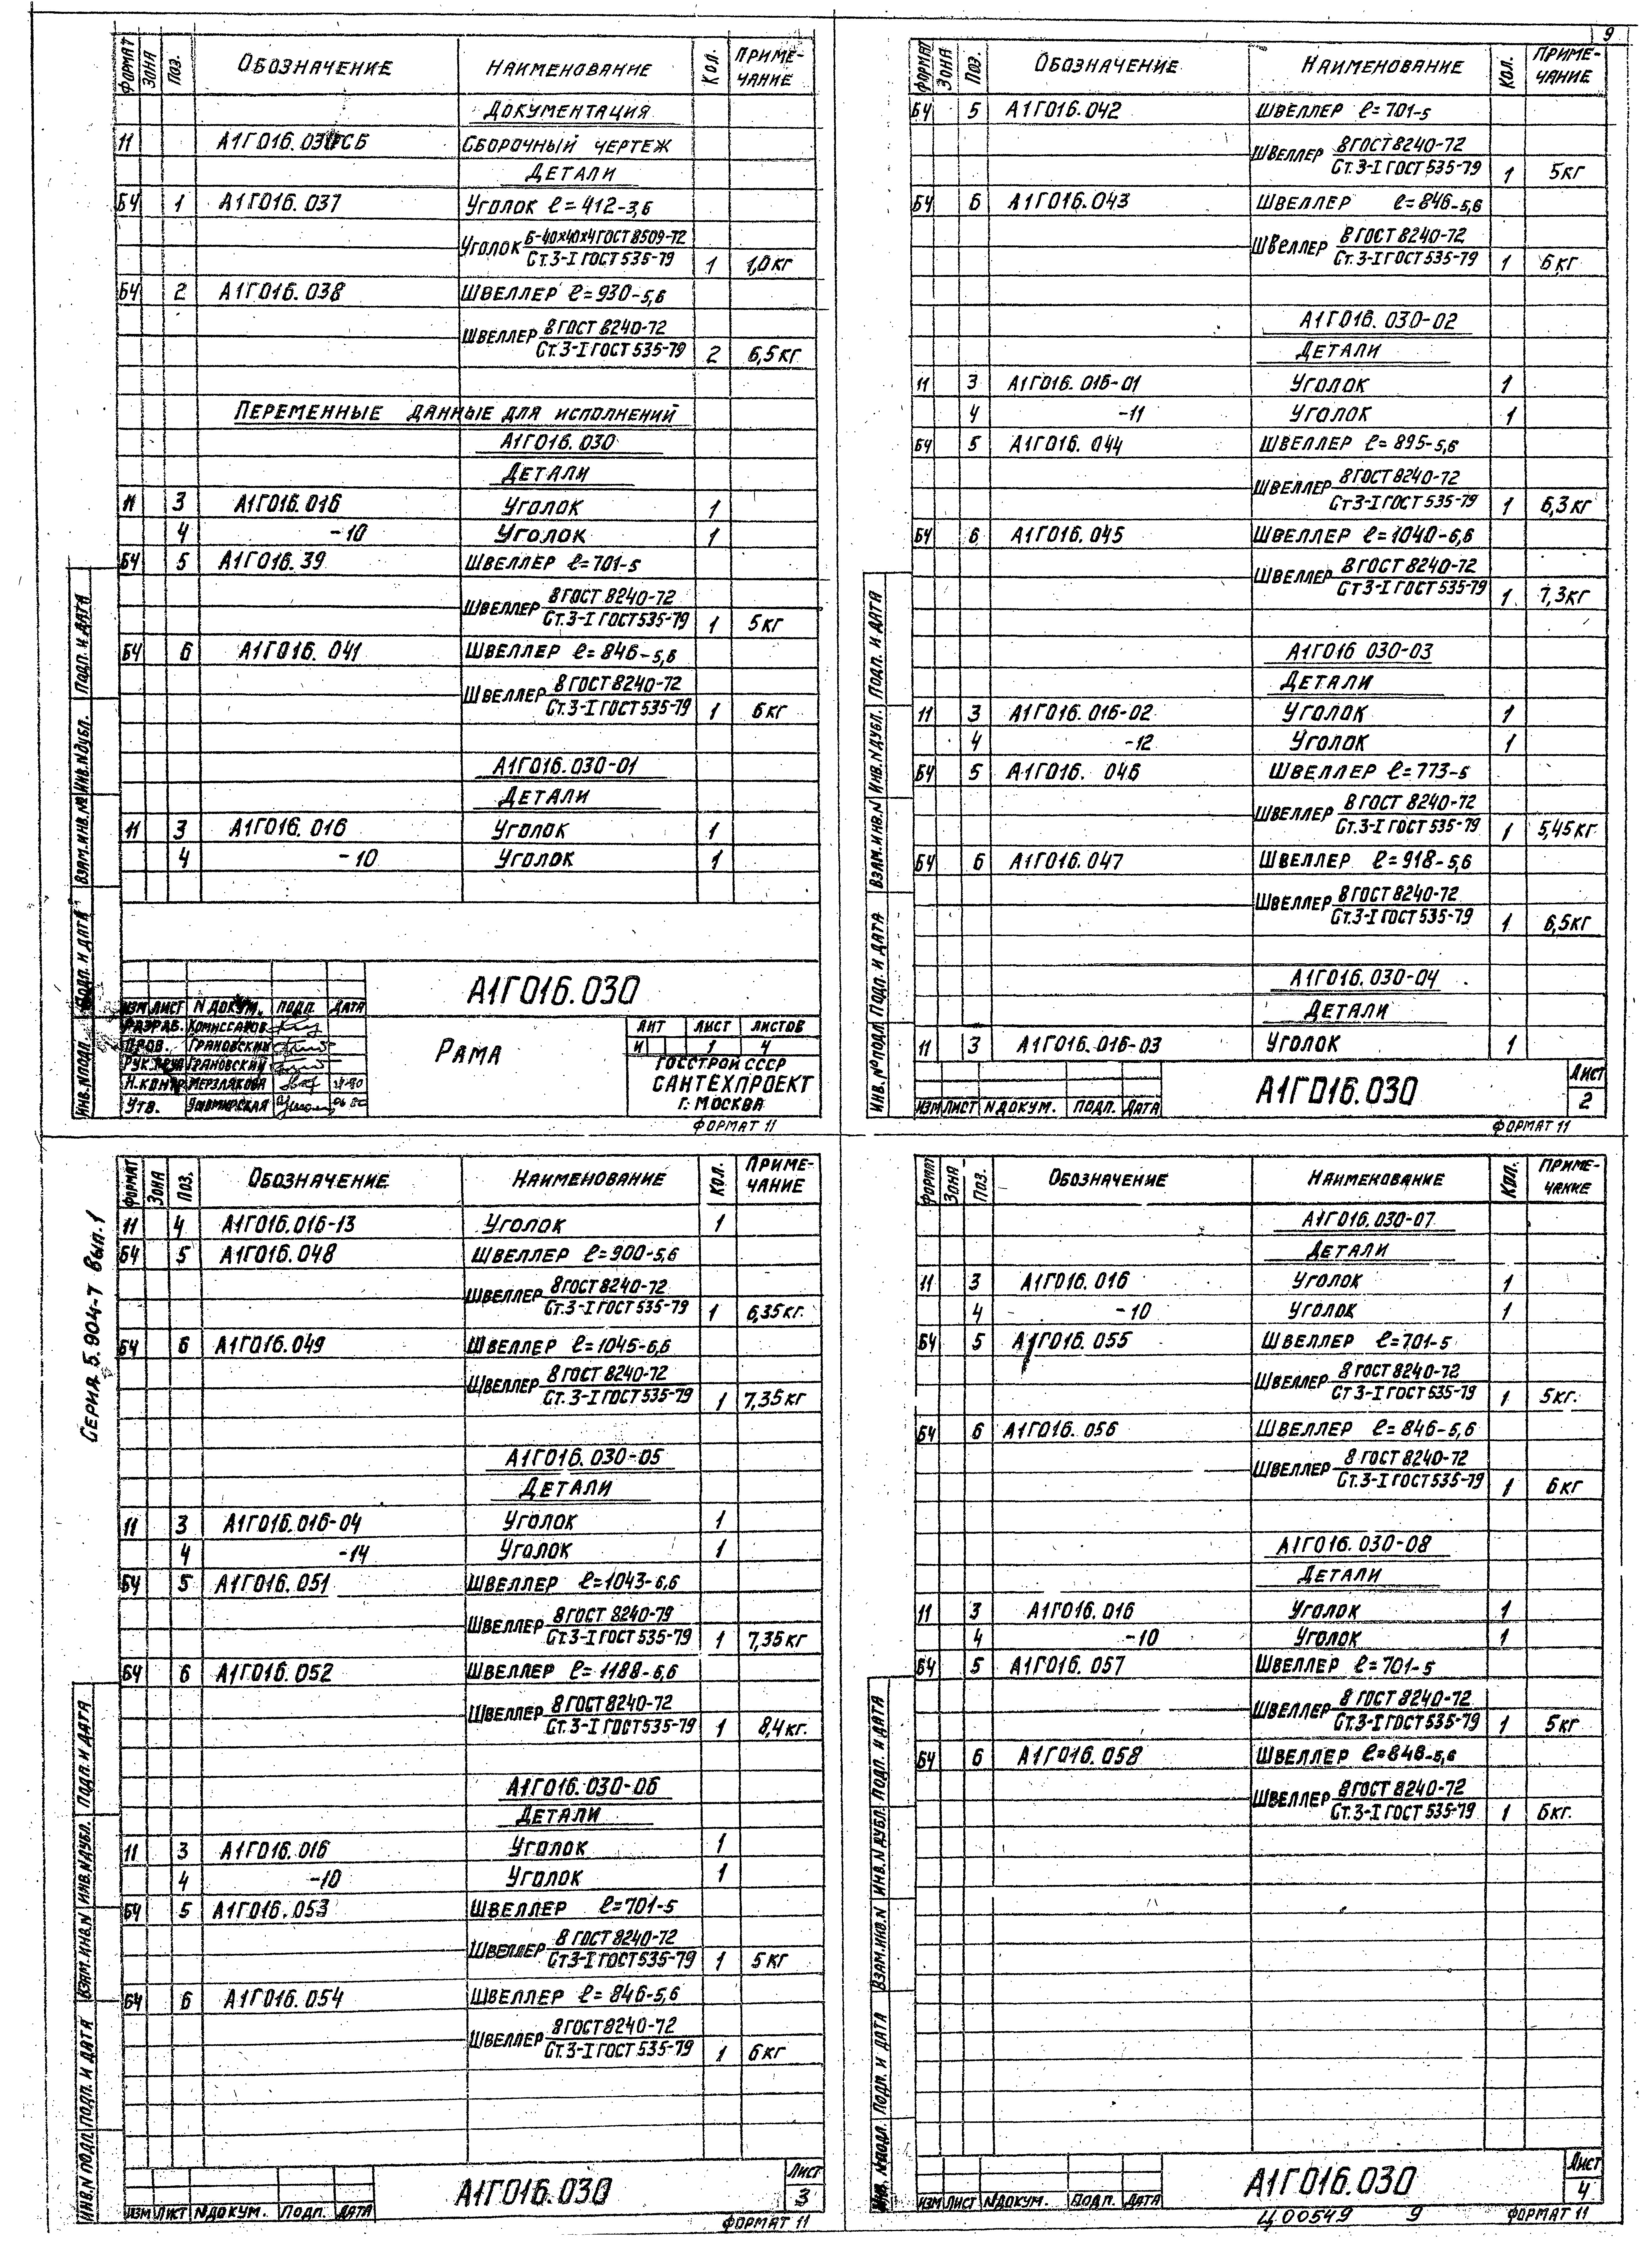 9
ФОРМАТ ЗОНА ПОЗ. ОБОЗНАЧЕНИЕ НАИМЕНОВАНИЕ КОЛ. ПРИМЕ-ЧАНИЕ
ДОКУМЕНТАЦИЯ
11 А1Г016.030СБ СБОРОЧНЫЙ ЧЕРТЕЖ
ДЕТАЛИ
БЧ 1 А1Г016.037 УГОЛОК ℓ=412-3,6
УГОЛОК Б-40×40×4 ГОСТ 8509-72
Ст.3-I ГОСТ 535-79 1 1,0 КГ
БЧ 2 А1Г016.038 ШВЕЛЛЕР ℓ=930-5,6
ШВЕЛЛЕР 8 ГОСТ 8240-72
Ст.3-I ГОСТ 535-79 2 6,5 КГ
ПЕРЕМЕННЫЕ ДАННЫЕ ДЛЯ ИСПОЛНЕНИЙ
А1Г016.030
ДЕТАЛИ
11 3 А1Г016.016 УГОЛОК 1
4 -10 УГОЛОК 1
БЧ 5 А1Г016.39 ШВЕЛЛЕР ℓ=701-5
ШВЕЛЛЕР 8 ГОСТ 8240-72
Ст.3-I ГОСТ 535-79 1 5 КГ
БЧ 6 А1Г016.041 ШВЕЛЛЕР ℓ=846-5,6
ШВЕЛЛЕР 8 ГОСТ 8240-72
Ст.3-I ГОСТ 535-79 1 6 КГ
А1Г016.030-01
ДЕТАЛИ
11 3 А1Г016.016 УГОЛОК 1
4 -10 УГОЛОК 1
ИНВ.N ПОДЛ. ПОДП. И ДАТА ВЗАМ.ИНВ.№ ИНВ.N ДУБЛ. ПОДП. И ДАТА
А1Г016.030
ИЗМ ЛИСТ N ДОКУМ. ПОДП. ДАТА
РАЗРАБ. КОМИССАРОВ
ПРОВ. ГРАНОВСКИЙ
РУК. ГРАНОВСКИЙ
Н.КОНТР. МЕРЗЛЯКОВА
УТВ.
РАМА
ЛИТ ЛИСТ ЛИСТОВ
И 1 4
ГОССТРОЙ СССР
САНТЕХПРОЕКТ
Г. МОСКВА
ФОРМАТ 11
ФОРМАТ ЗОНА ПОЗ. ОБОЗНАЧЕНИЕ НАИМЕНОВАНИЕ КОЛ. ПРИМЕ-ЧАНИЕ
БЧ 5 А1Г016.042 ШВЕЛЛЕР ℓ=701-5
ШВЕЛЛЕР 8 ГОСТ 8240-72
Ст.3-I ГОСТ 535-79 1 5 КГ
БЧ 6 А1Г016.043 ШВЕЛЛЕР ℓ=846-5,6
ШВЕЛЛЕР 8 ГОСТ 8240-72
Ст.3-I ГОСТ 535-79 1 6 КГ
А1Г016.030-02
ДЕТАЛИ
11 3 А1Г016.016-01 УГОЛОК 1
4 -11 УГОЛОК 1
БЧ 5 А1Г016.044 ШВЕЛЛЕР ℓ=895-5,6
ШВЕЛЛЕР 8 ГОСТ 8240-72
Ст3-I ГОСТ 535-79 1 6,3 КГ
БЧ 6 А1Г016.045 ШВЕЛЛЕР ℓ=1040-6,6
ШВЕЛЛЕР 8 ГОСТ 8240-72
Ст3-I ГОСТ 535-79 1 7,3 КГ
А1Г016 030-03
ДЕТАЛИ
11 3 А1Г016.016-02 УГОЛОК 1
4 -12 УГОЛОК 1
БЧ 5 А1Г016.046 ШВЕЛЛЕР ℓ=773-5
ШВЕЛЛЕР 8 ГОСТ 8240-72
Ст.3-I ГОСТ 535-79 1 5,45 КГ
БЧ 6 А1Г016.047 ШВЕЛЛЕР ℓ=918-5,6
ШВЕЛЛЕР 8 ГОСТ 8240-72
Ст.3-I ГОСТ 535-79 1 6,5 КГ
А1Г016.030-04
ДЕТАЛИ
11 3 А1Г016.016-03 УГОЛОК 1
ИНВ.№ ПОДЛ ПОДП. И ДАТА ВЗАМ.ИНВ.N ИНВ.N ДУБЛ. ПОДП. И ДАТА
ИЗМ ЛИСТ N ДОКУМ. ПОДП. ДАТА
А1Г016.030
ЛИСТ
2
ФОРМАТ 11
СЕРИЯ 5.904-7 ВЫП.1
ФОРМАТ ЗОНА ПОЗ. ОБОЗНАЧЕНИЕ НАИМЕНОВАНИЕ КОЛ. ПРИМЕ-ЧАНИЕ
11 4 А1Г016.016-13 УГОЛОК 1
БЧ 5 А1Г016.048 ШВЕЛЛЕР ℓ=900-5,6
ШВЕЛЛЕР 8 ГОСТ 8240-72
Ст.3-I ГОСТ 535-79 1 6,35 КГ.
БЧ 6 А1Г016.049 ШВЕЛЛЕР ℓ=1045-6,6
ШВЕЛЛЕР 8 ГОСТ 8240-72
Ст.3-I ГОСТ 535-79 1 7,35 КГ
А1Г016.030-05
ДЕТАЛИ
11 3 А1Г016.016-04 УГОЛОК 1
4 -14 УГОЛОК 1
БЧ 5 А1Г016.051 ШВЕЛЛЕР ℓ=1043-6,6
ШВЕЛЛЕР 8 ГОСТ 8240-79
Ст.3-I ГОСТ 535-79 1 7,35 КГ
БЧ 6 А1Г016.052 ШВЕЛЛЕР ℓ=1188-6,6
ШВЕЛЛЕР 8 ГОСТ 8240-72
Ст.3-I ГОСТ 535-79 1 8,4 КГ.
А1Г016.030-06
ДЕТАЛИ
11 3 А1Г016.016 УГОЛОК 1
4 -10 УГОЛОК 1
БЧ 5 А1Г016.053 ШВЕЛЛЕР ℓ=701-5
ШВЕЛЛЕР 8 ГОСТ 8240-72
Ст3-I ГОСТ 535-79 1 5 КГ
БЧ 6 А1Г016.054 ШВЕЛЛЕР ℓ=846-5,6
ШВЕЛЛЕР 8 ГОСТ 8240-72
Ст.3-I ГОСТ 535-79 1 6 КГ
ИНВ.N ПОДЛ. ПОДП. И ДАТА ВЗАМ.ИНВ.N ИНВ.N ДУБЛ. ПОДП. И ДАТА
ИЗМ ЛИСТ N ДОКУМ. ПОДП. ДАТА
А1Г016.030
ЛИСТ
3
ФОРМАТ 11
ФОРМАТ ЗОНА ПОЗ. ОБОЗНАЧЕНИЕ НАИМЕНОВАНИЕ КОЛ. ПРИМЕ-ЧАНИЕ
А1Г016.030-07
ДЕТАЛИ
11 3 А1Г016.016 УГОЛОК 1
4 -10 УГОЛОК 1
БЧ 5 А1Г016.055 ШВЕЛЛЕР ℓ=701-5
ШВЕЛЛЕР 8 ГОСТ 8240-72
Ст 3-I ГОСТ 535-79 1 5 КГ.
БЧ 6 А1Г016.056 ШВЕЛЛЕР ℓ=846-5,6
ШВЕЛЛЕР 8 ГОСТ 8240-72
Ст.3-I ГОСТ 535-79 1 6 КГ
А1Г016.030-08
ДЕТАЛИ
11 3 А1Г016.016 УГОЛОК 1
4 -10 УГОЛОК 1
БЧ 5 А1Г016.057 ШВЕЛЛЕР ℓ=701-5
ШВЕЛЛЕР 8 ГОСТ 8240-72
Ст.3-I ГОСТ 535-79 1 5 КГ
БЧ 6 А1Г016.058 ШВЕЛЛЕР ℓ=846-5,6
ШВЕЛЛЕР 8 ГОСТ 8240-72
Ст.3-I ГОСТ 535-79 1 6 КГ.
ИНВ. N ПОДЛ. ПОДП. И ДАТА ВЗАМ.ИНВ.N ИНВ.N ДУБЛ. ПОДП. И ДАТА
ИЗМ ЛИСТ N ДОКУМ. ПОДП. ДАТА
А1Г016.030
ЛИСТ
4
Ц00549 9 ФОРМАТ 11